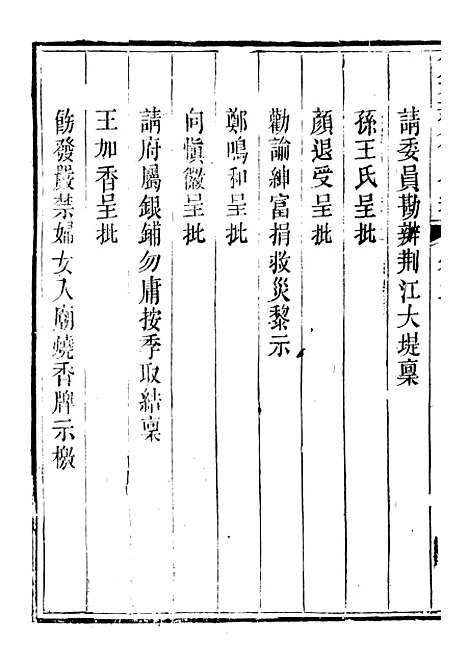 請委員勘辦荆江大堤稟
孫王氏呈批
顏退受呈批
勸諭紳富捐救災黎示
鄭鳴和呈批
向慎徽呈批
請府屬銀鋪勿庸按季取結稟
王加香呈批
飭發嚴禁婦女入廟燒香牌示檄